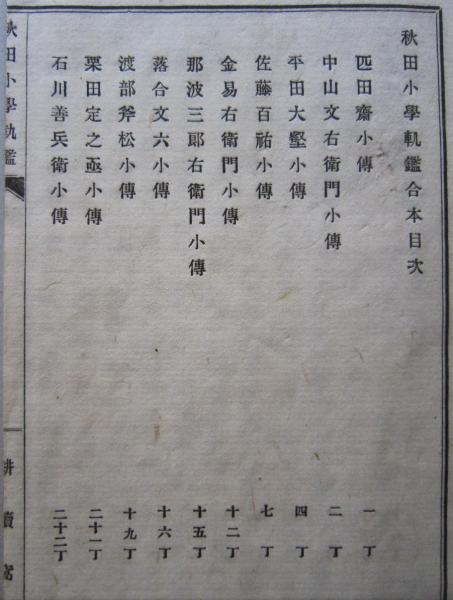 秋田小學軌鑑合本目次
匹田齋小傳 一丁
中山文右衛門小傳 二丁
平田大壑小傳 四丁
佐藤百祐小傳 七丁
金易右衛門小傳 十二丁
那波三郎右衛門小傳 十五丁
落合文六小傳 十六丁
渡部斧松小傳 十九丁
栗田定之丞小傳 二十一丁
石川善兵衛小傳 二十二丁
秋田小學軌鑑